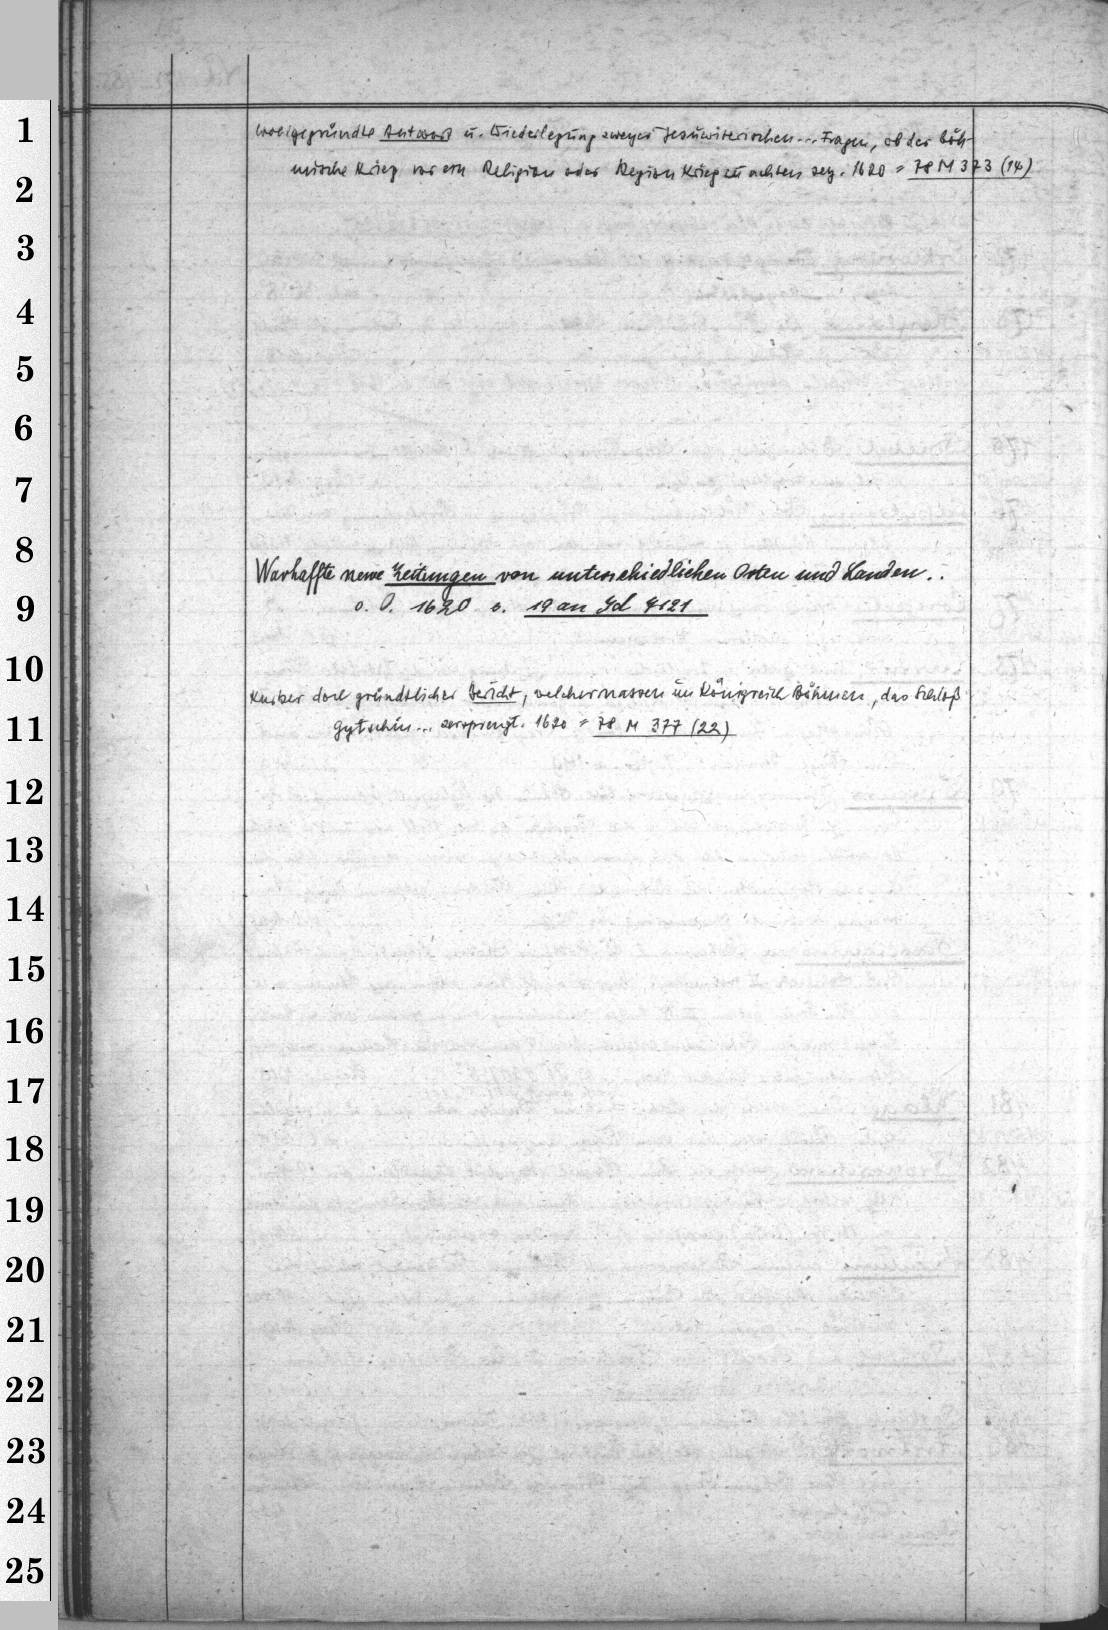 1
wolgegründte Antwort u. Wiederlegung zweyer Jesuwiterischen... Fragen, ob der böh-
mische Krieg vor ein Religion oder Region Krieg zu achten sey. 1620 = 78 M 373 (14)
2
3
4
5
6
7
8
Warhaffte newe Zeitungen von unterschiedlichen Orten und Landen..
9
o. O. 1620 19 an Yd 4121
10
Kurtzer doch gründtlicher Bericht, welchermassen im Königreich Böhmen, das Schloß
11
Gytschin... zersprengt. 1620 = 78 M 377 (22)
12
13
14
15
16
17
18
19
20
21
22
23
24
25